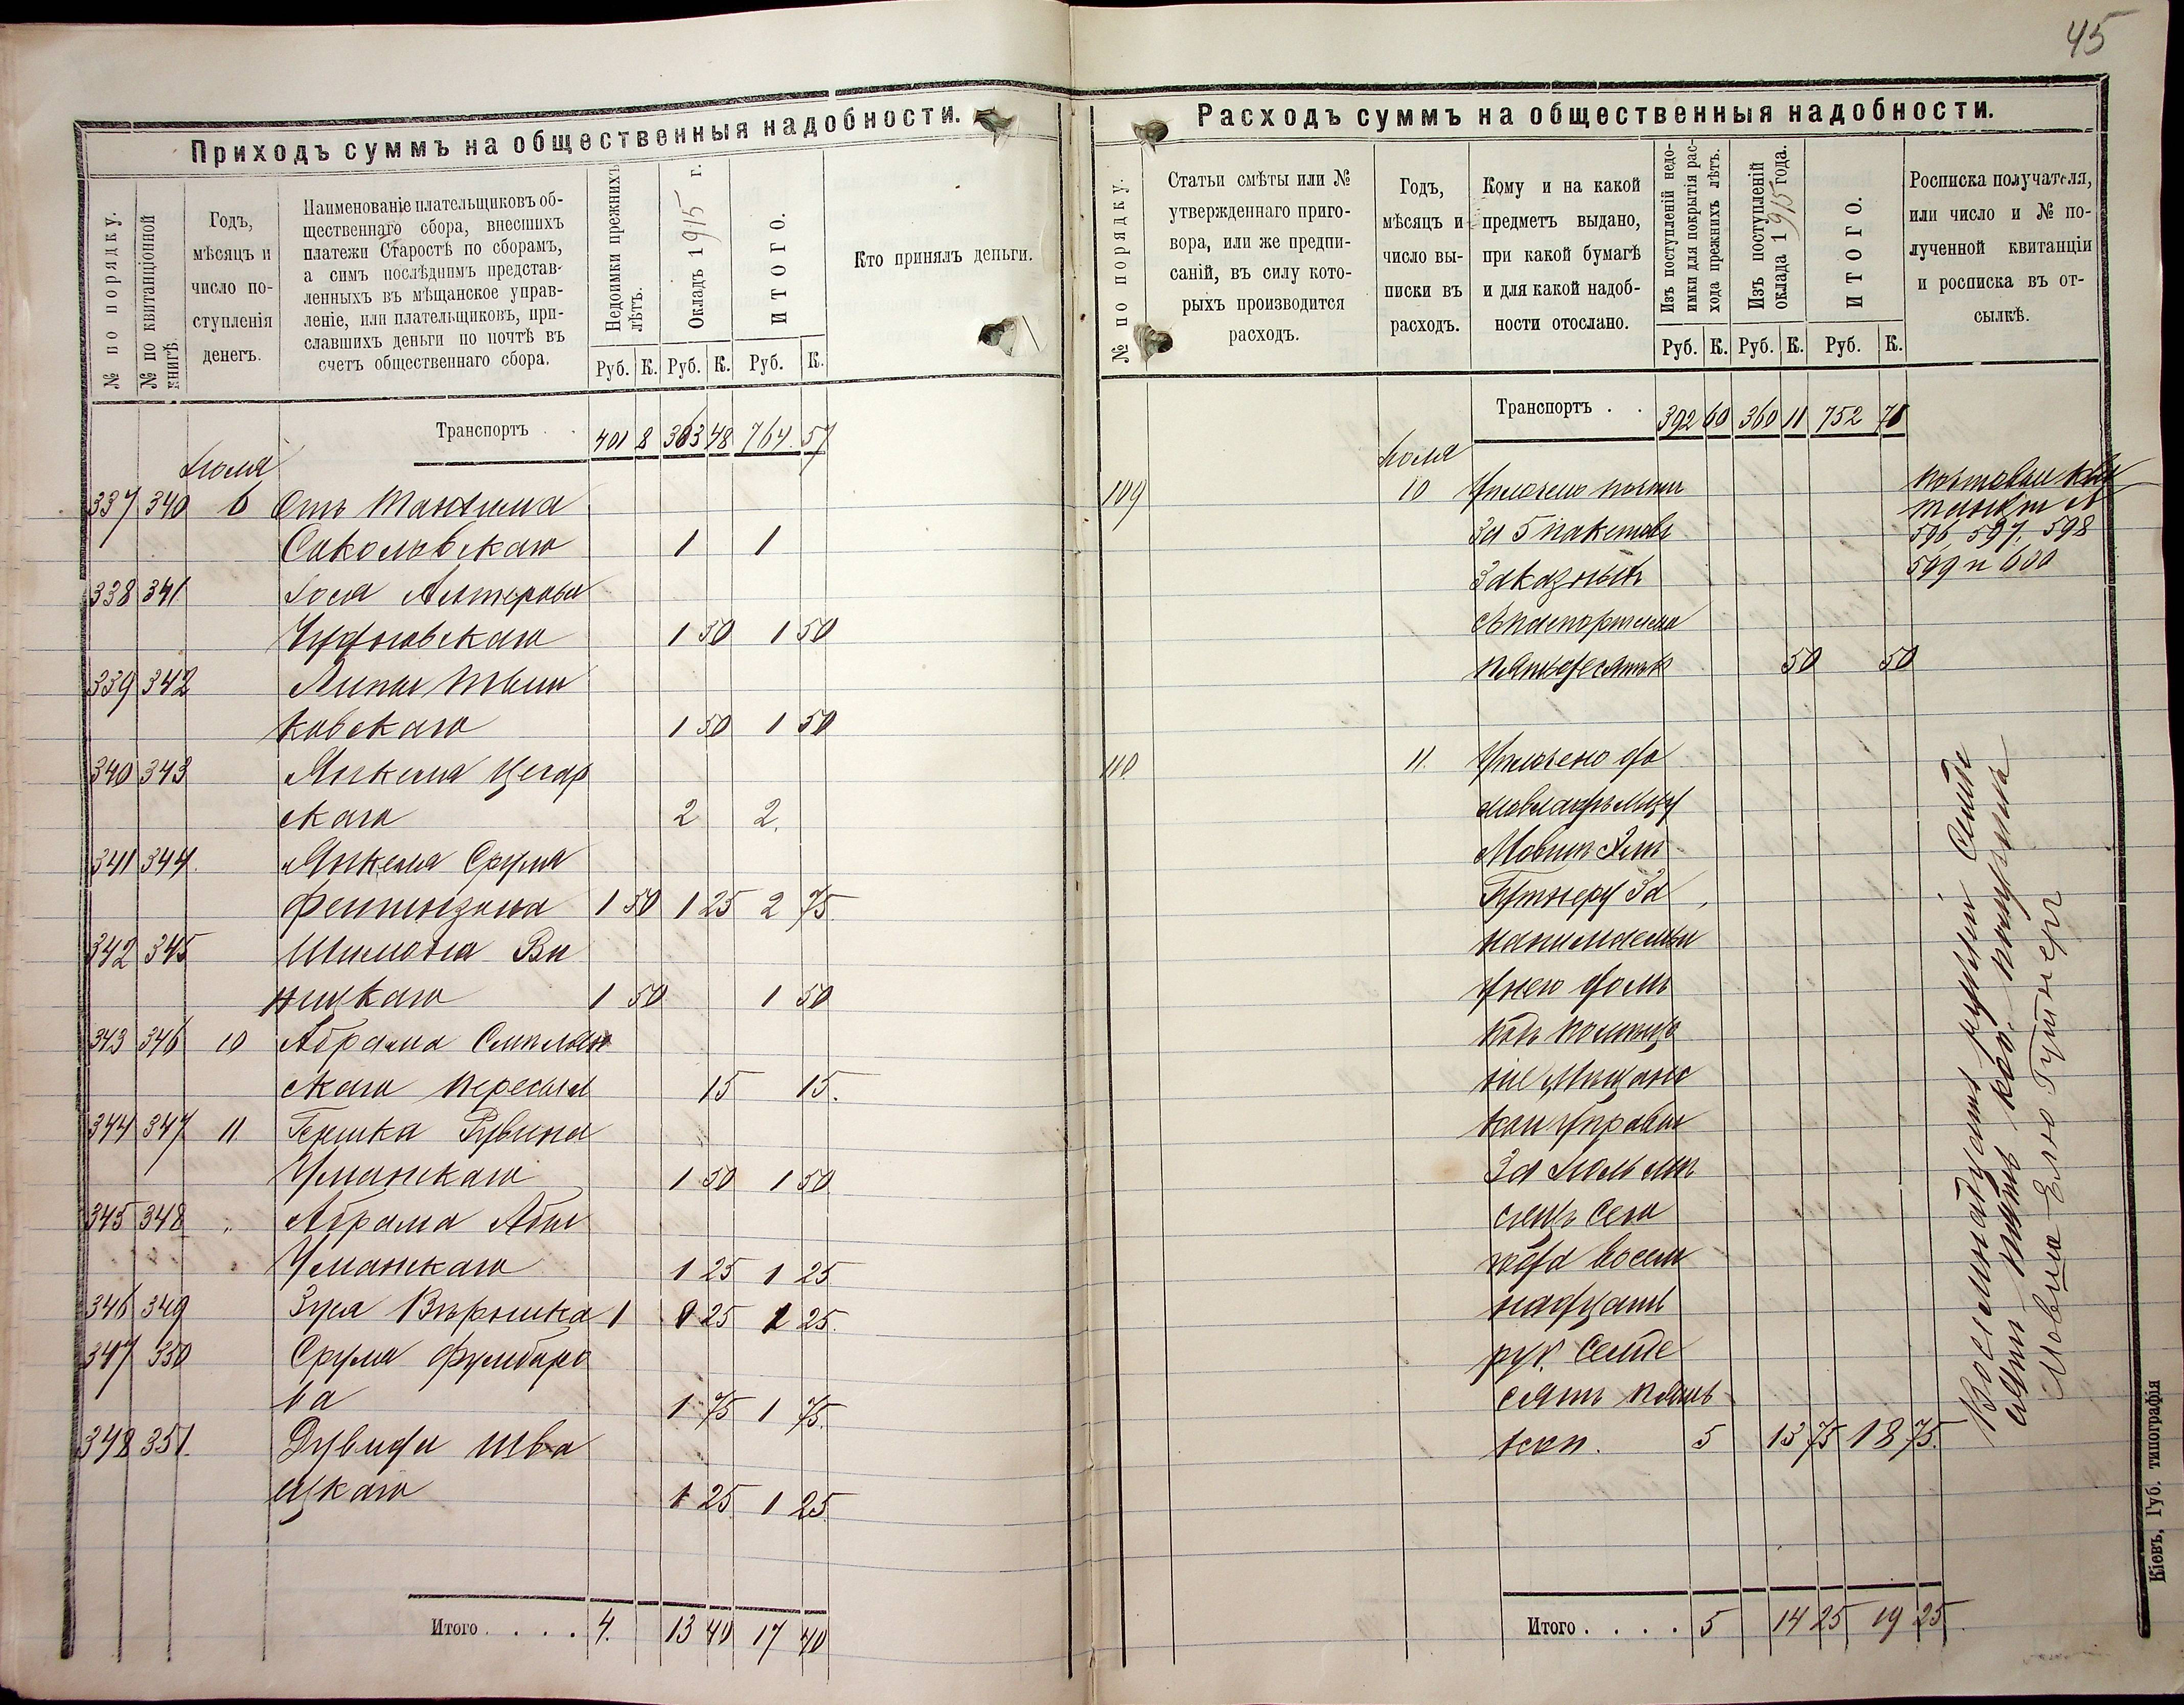 45
Приходъ суммъ на общественныя надобности.
№ по порядку.
№ по квитанціонной книгѣ.
Годъ,
мѣсяцъ и
число по-
ступленія
денегъ.
Наименованіе плательщиковъ об-
щественнаго сбора, внесшихъ
платежи Старостѣ по сборамъ,
а симъ послѣднимъ представ-
ленныхъ въ мѣщанское управ-
леніе, или плательщиковъ, при-
славшихъ деньги по почтѣ въ
счетъ общественнаго сбора.
Недоимки прежнихъ
лѣтъ.
Окладъ 1915 г.
ИТОГО.
Кто принялъ деньги.
Руб. К. Руб. К. Руб. К.
Транспортъ 401 8 363 48 764 57
Іюля
337 340 6 Отъ
Сокольвскаго 1 1
338 341 Іося
Чудновскаго 1 50 1 50
339 342
ковскаго 1 50 1 50
340 343 Янкеля Цегар
скаго 2 2.
341 344. Янкеля Сруля
1 50 1 25 2 75.
342 345 Шимона Ви
ницкаго 1 50 1 50
343 346 10 Абрама Смилян
скаго пересыл 15 15.
344 347 11 Гершка Рувина
Уманскаго 1 50 1 50
345 348 " Абрама Абы
Уманскаго 1 25 1 25
346 349 Зуся 1 25 25.
347 350 Сруля Фумбаро
ва 1 75 1 75.
348 351. Дувида Шва
рцкаго 1 25 1 25.
Итого . . . . 4. 13 40 17 40
Расходъ суммъ на общественныя надобности.
№ по порядку.
Статьи смѣты или №
утвержденнаго приго-
вора, или же предпи-
саній, въ силу кото-
рыхъ производится
расходъ.
Годъ,
мѣсяцъ и
число вы-
писки въ
расходъ.
Кому и на какой
предметъ выдано,
при какой бумагѣ
и для какой надоб-
ности отослано.
Изъ поступленій недо-
имки для покрытія рас-
хода прежнихъ лѣтъ.
Изъ поступленій
оклада 1915 года.
ИТОГО.
Росписка получателя,
или число и № по-
лученной квитанціи
и росписка въ от-
сылкѣ.
Руб. К. Руб. К. Руб. К.
Транспортъ . . 392 60 360 11 752 71
Іюля
109 10 Уплочено почты
за 5 пакетовъ
заказныхъ
съ паспортами
пятьдесятъ к 50 50
почтовыи кви
танціи №
596 597, 598
599 и 600
110 11. Уплочено до
мовладѣльцу
Мовшѣ Элю
Гутнеру за
нанимаемый
у него домъ
подъ помѣще
ніе Мѣщанс
кой управы
за Іюль мѣ
сяцъ сего
года восем
надцать
руб. семде
сятъ пять
коп. 5 13 75 18 75.
Восемнадцать рублей семде
сятъ пять коп. получилъ
Мовша Елю Гутнеръ
Итого . . . . 5 14 25 19 25
Кіевъ, Губ. типографія